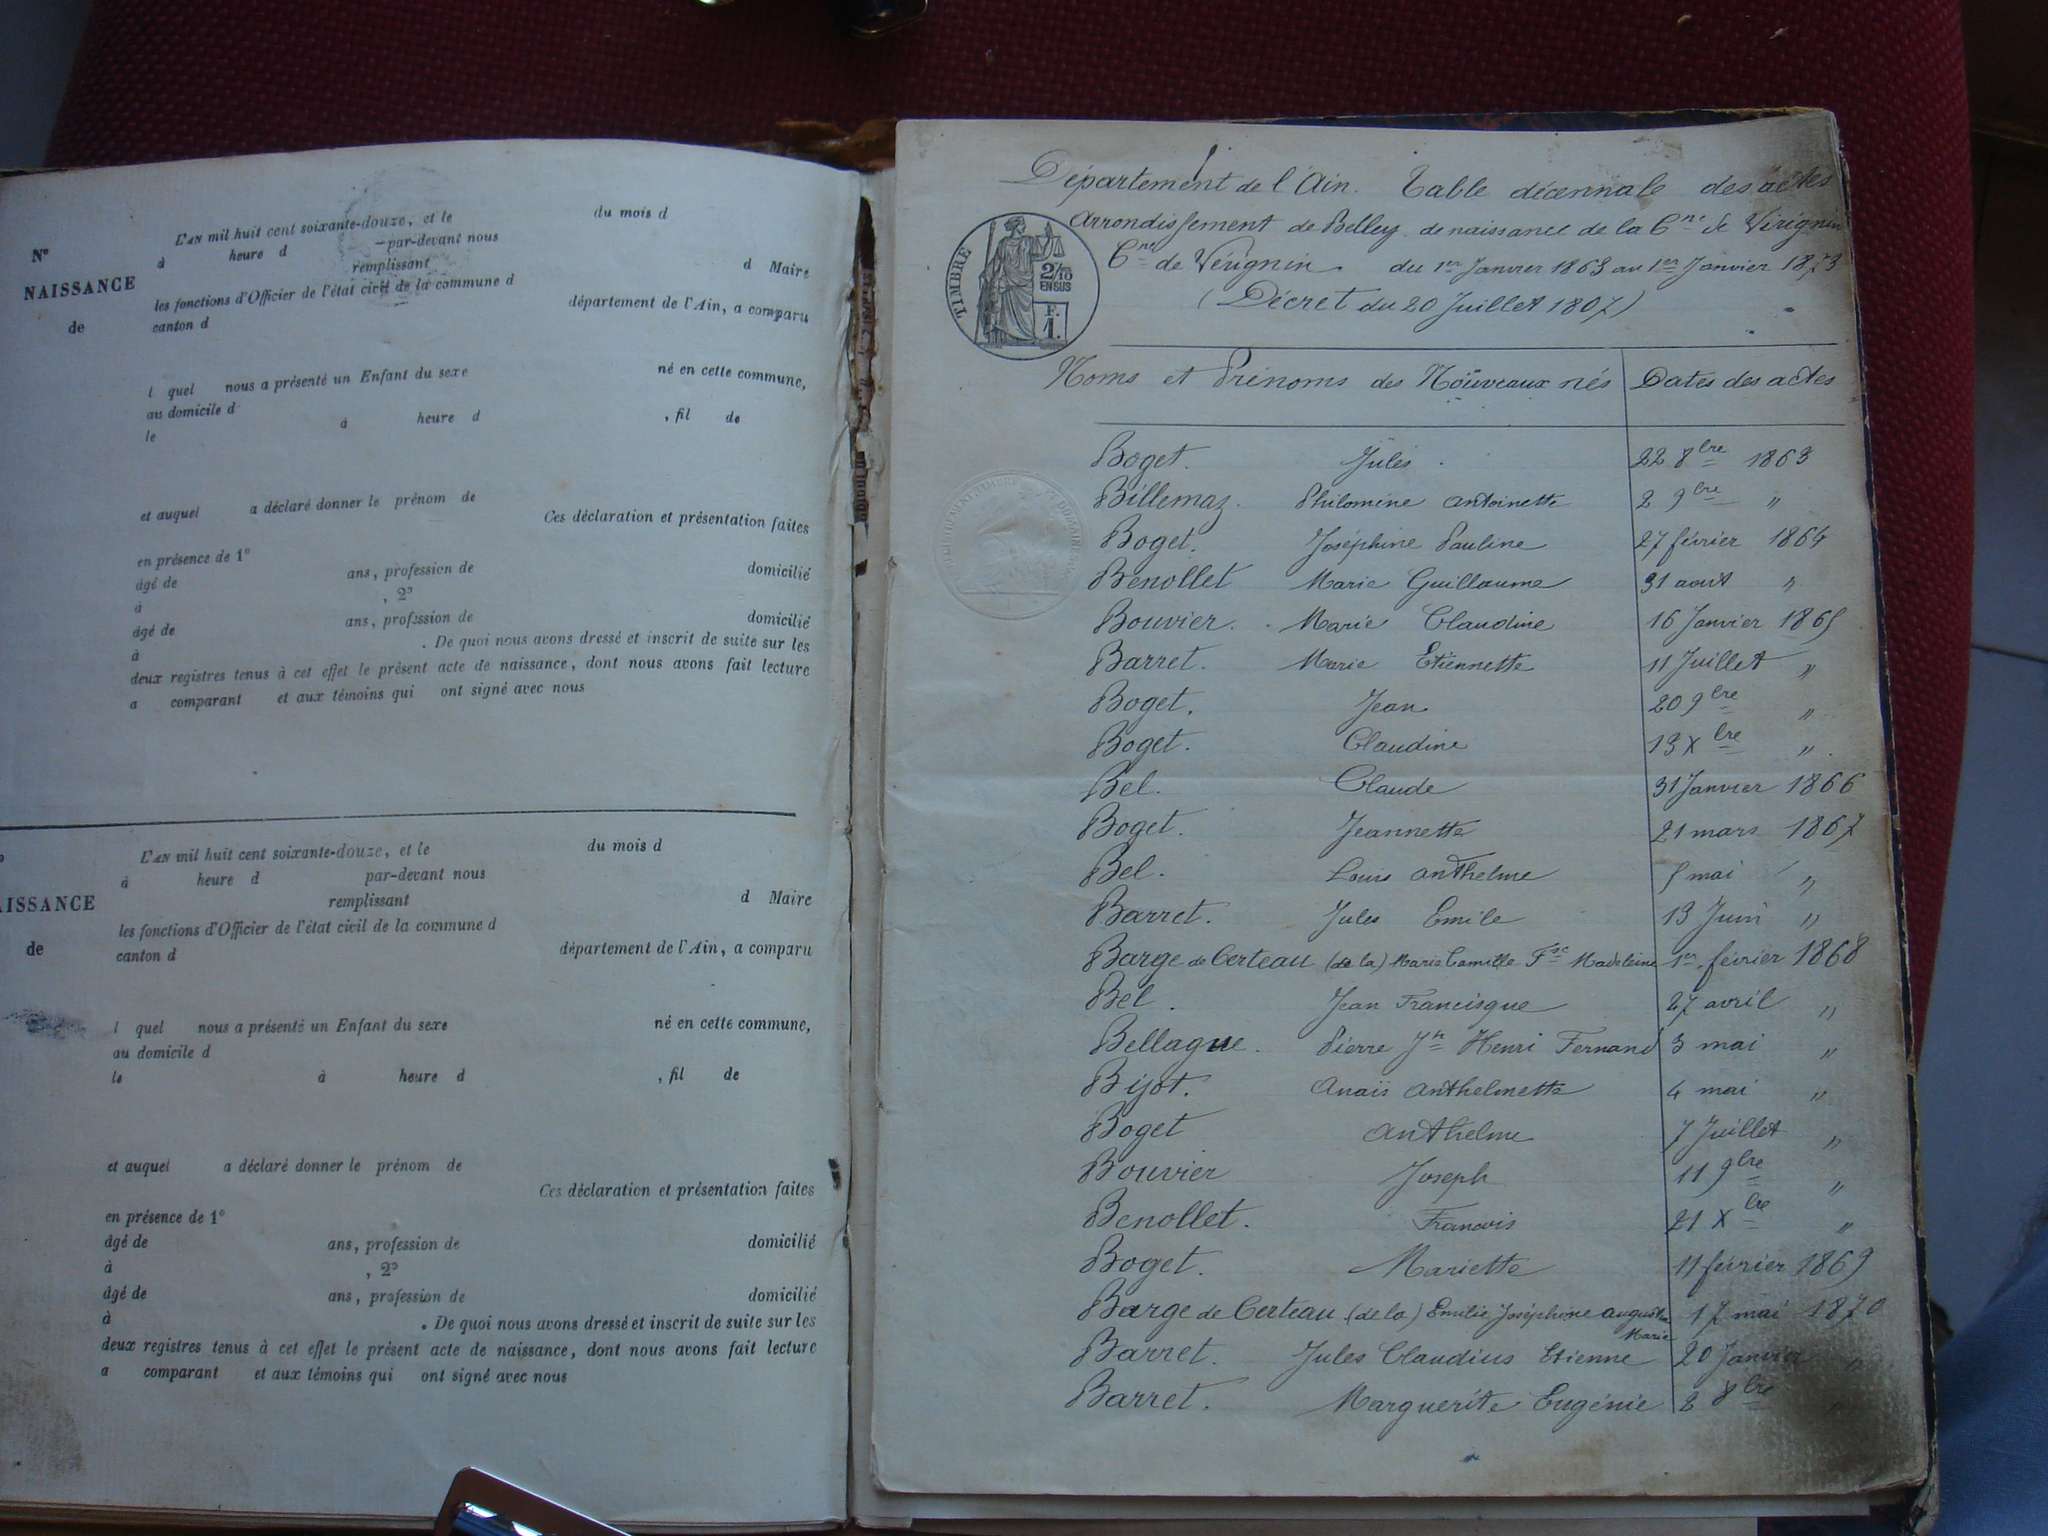 N°
NAISSANCE
de
L'AN mil huit cent soixante-douze, et le du mois d
à heure d par-devant nous
remplissant d Maire
les fonctions d'Officier de l'état civil de la commune d
canton d département de l'Ain, a comparu
l quel nous a présenté un Enfant du sexe né en cette commune,
au domicile d
le à heure d , fil de
et auquel a déclaré donner le prénom de
Ces déclaration et présentation faites
en présence de 1°
âgé de ans, profession de domicilié
à , 2°
âgé de ans, profession de domicilié
à . De quoi nous avons dressé et inscrit de suite sur les
deux registres tenus à cet effet le présent acte de naissance, dont nous avons fait lecture
a comparant et aux témoins qui ont signé avec nous
AISSANCE
de
L'AN mil huit cent soixante-douze, et le du mois d
à heure d par-devant nous
remplissant d Maire
les fonctions d'Officier de l'état civil de la commune d
canton d département de l'Ain, a comparu
l quel nous a présenté un Enfant du sexe né en cette commune,
au domicile d
le à heure d , fil de
et auquel a déclaré donner le prénom de
Ces déclaration et présentation faites
en présence de 1°
âgé de ans, profession de domicilié
à , 2°
âgé de ans, profession de domicilié
à . De quoi nous avons dressé et inscrit de suite sur les
deux registres tenus à cet effet le présent acte de naissance, dont nous avons fait lecture
a comparant et aux témoins qui ont signé avec nous
Département de l'Ain. Table décennale des actes
Arrondissement de Belley de naissance de la Cne de Virignin
Cne de Virignin. du 1er Janvier 1863 au 1er Janvier 1873
(Décret du 20 Juillet 1807)
TIMBRE
2/10 EN SUS
F. 1.
Noms et Prénoms des Nouveaux nés Dates des actes
Boget. Jules. 22 8bre 1863
Billemaz. Philomène Antoinette 2 9bre "
Boget. Joséphine Pauline 27 février 1864
Benollet Marie Guillaume 31 aout "
Bouvier. Marie Claudine 16 Janvier 1865
Barret. Marie Etiennette 11 Juillet "
Boget. Jean 20 9bre "
Boget. Claudine 13 Xbre "
Bel. Claude 31 Janvier 1866
Boget. Jeannette 21 mars 1867
Bel. Louis Anthelme 5 mai "
Barret. Jules Emile 13 Juin "
Barge de Certeau (de la) Marie Camille Fse Madeleine 1er février 1868
Bel. Jean Francisque 27 avril "
Bellague. Pierre Jh Henri Fernand 3 mai "
Bijot. Anaïs Anthelmette 4 mai "
Boget Anthelme 7 Juillet "
Bouvier Joseph 11 9bre "
Benollet. Francois 21 Xbre "
Boget. Mariette 11 février 1869
Barge de Certeau (de la) Emilie Joséphine Augustine 17 mai 1870
Marie
Barret. Jules Claudius Etienne 20 Janvier "
Barret. Marguerite Eugénie 2 8bre "